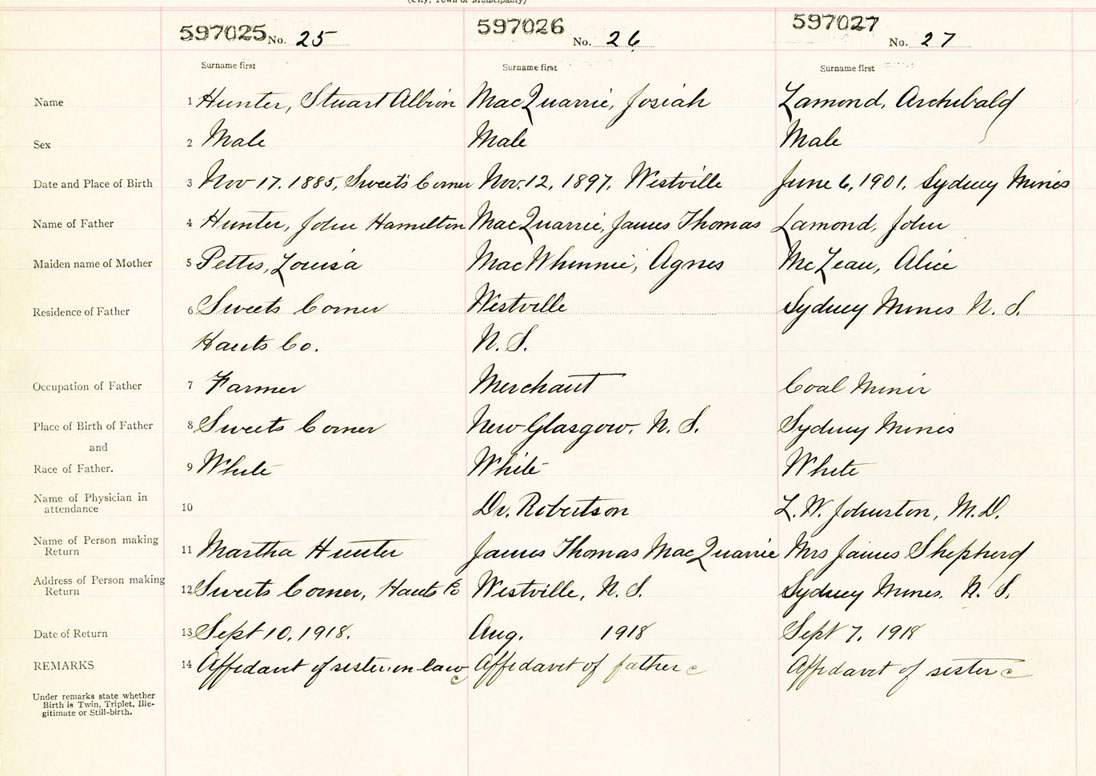 (City, Town or Municipality)
597025 No. 25 597026 No. 26 597027 No. 27
Surname first Surname first Surname first
Name 1 Hunter, Stuart Albion MacQuarrie, Josiah Lamond, Archibald
Sex 2 Male Male Male
Date and Place of Birth 3 Nov 17. 1885, Sweets Corner Nov. 12, 1897, Westville June 6, 1901, Sydney Mines
Name of Father 4 Hunter, John Hamilton MacQuarrie, James Thomas Lamond, John
Maiden name of Mother 5 Pettis, Louisa MacWhinnie, Agnes McLean, Alice
Residence of Father 6 Sweets Corner Westville Sydney Mines N. S.
Hants Co. N. S.
Occupation of Father 7 Farmer Merchant Coal Miner
Place of Birth of Father 8 Sweets Corner New Glasgow, N. S. Sydney Mines
and
Race of Father. 9 White White White
Name of Physician in
attendance 10 Dr. Robertson L. W. Johnston, M.D.
Name of Person making
Return 11 Martha Hunter James Thomas MacQuarrie Mrs James Shepherd
Address of Person making
Return 12 Sweets Corner, Hants Co Westville, N. S. Sydney Mines. N. S.
Date of Return 13 Sept 10, 1918. Aug. 1918 Sept 7, 1918
REMARKS 14 Affidavit of sister in law c Affidavit of father c Affidavit of sister c
Under remarks state whether
Birth is Twin, Triplet, Ille-
gitimate or Still-birth.